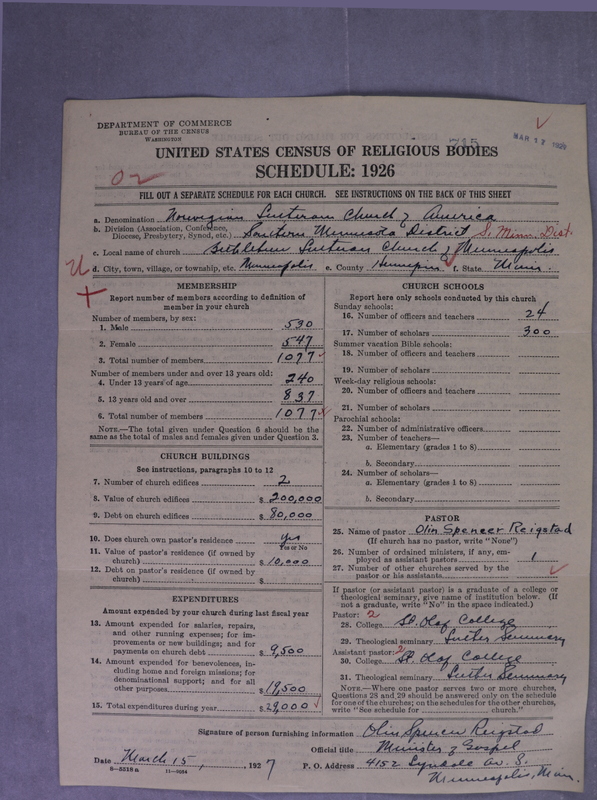 DEPARTMENT OF COMMERCE
BUREAU OF THE CENSUS
WASHINGTON
MAR 17
UNITED STATES CENSUS OF RELIGIOUS BODIES
SCHEDULE: 1926
FILL OUT A SEPARATE SCHEDULE FOR EACH CHURCH. SEE INSTRUCTIONS ON THE BACK OF THIS SHEET
a. Denomination Norwegian Lutheran Church of America
b. Division (Association, Conference, Diocese, Presbytery, Synod, etc.) Southern Minnesota District S. Minn. Dist.
c. Local name of church Bethlehem Lutheran Church of Minneapolis
d. City, town, village, or township, etc. Minneapolis e. County Hennepin f. State Minn.
MEMBERSHIP
Report number of members according to definition of
member in your church
Number of members, by sex:
1. Male 530
2. Female 547
3. Total number of members 1077
Number of members under and over 13 years old:
4. Under 13 years of age 240
5. 13 years old and over 837
6. Total number of members 1077
NOTE.—The total given under Question 6 should be the
same as the total of males and females given under Question 3.
CHURCH BUILDINGS
See instructions, paragraphs 10 to 12
7. Number of church edifices 2
8. Value of church edifices $ 200,000
9. Debt on church edifices $ 80,000
10. Does church own pastor's residence yes
Yes or No
11. Value of pastor's residence (if owned by
church) $ 10,000
12. Debt on pastor's residence (if owned by
church) $
EXPENDITURES
Amount expended by your church during last fiscal year
13. Amount expended for salaries, repairs,
and other running expenses; for im-
provements or new buildings; and for
payments on church debt $ 9,500
14. Amount expended for benevolences, in-
cluding home and foreign missions; for
denominational support; and for all
other purposes $ 19,500
15. Total expenditures during year $ 29,000
CHURCH SCHOOLS
Report here only schools conducted by this church
Sunday schools:
16. Number of officers and teachers 24
17. Number of scholars 300
Summer vacation Bible schools:
18. Number of officers and teachers
19. Number of scholars
Week-day religious schools:
20. Number of officers and teachers
21. Number of scholars
Parochial schools:
22. Number of administrative officers
23. Number of teachers—
a. Elementary (grades 1 to 8)
b. Secondary
24. Number of scholars—
a. Elementary (grades 1 to 8)
b. Secondary
PASTOR
25. Name of pastor Olin Spencer Reigstad
(If church has no pastor, write "None")
26. Number of ordained ministers, if any, em-
ployed as assistant pastors 1
27. Number of other churches served by the
pastor or his assistants
If pastor (or assistant pastor) is a graduate of a college or
theological seminary, give name of institution below. (If
not a graduate, write "No" in the space indicated.)
Pastor: 2
28. College St. Olaf College
29. Theological seminary Luther Seminary
Assistant pastor: 2
30. College St. Olaf College
31. Theological seminary Luther Seminary
NOTE.—Where one pastor serves two or more churches,
Questions 28 and 29 should be answered only on the schedule
for one of the churches; on the schedules for the other churches,
write "See schedule for church."
Signature of person furnishing information Olin Spencer Reigstad
Official title Minister of Gospel
Date March 15, 1927 P. O. Address 4152 Lyndale Av. S.
8—5319a 11—9054 Minneapolis, Minn.